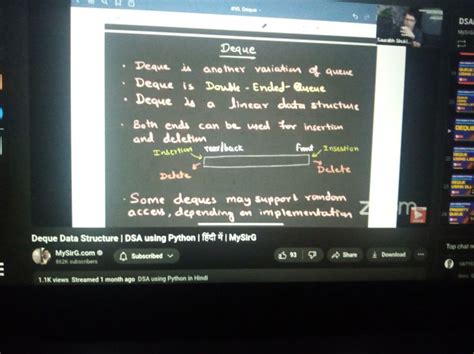 Deque
Deque is another variation of queue
Deque is Double-Ended-Queue
Deque is a linear data structure
Both ends can be used for insertion
and deletion
Insertion rear/back Front Insertion
Delete Delete
Some deques may support random
access, depending on implementation
Deque Data Structure | DSA using Python | हिंदी में | MySirG
MySirG.com
862K subscribers
Subscribed
93
Share
Download
1.1K views Streamed 1 month ago DSA using Python in Hindi
DSA
Top chat